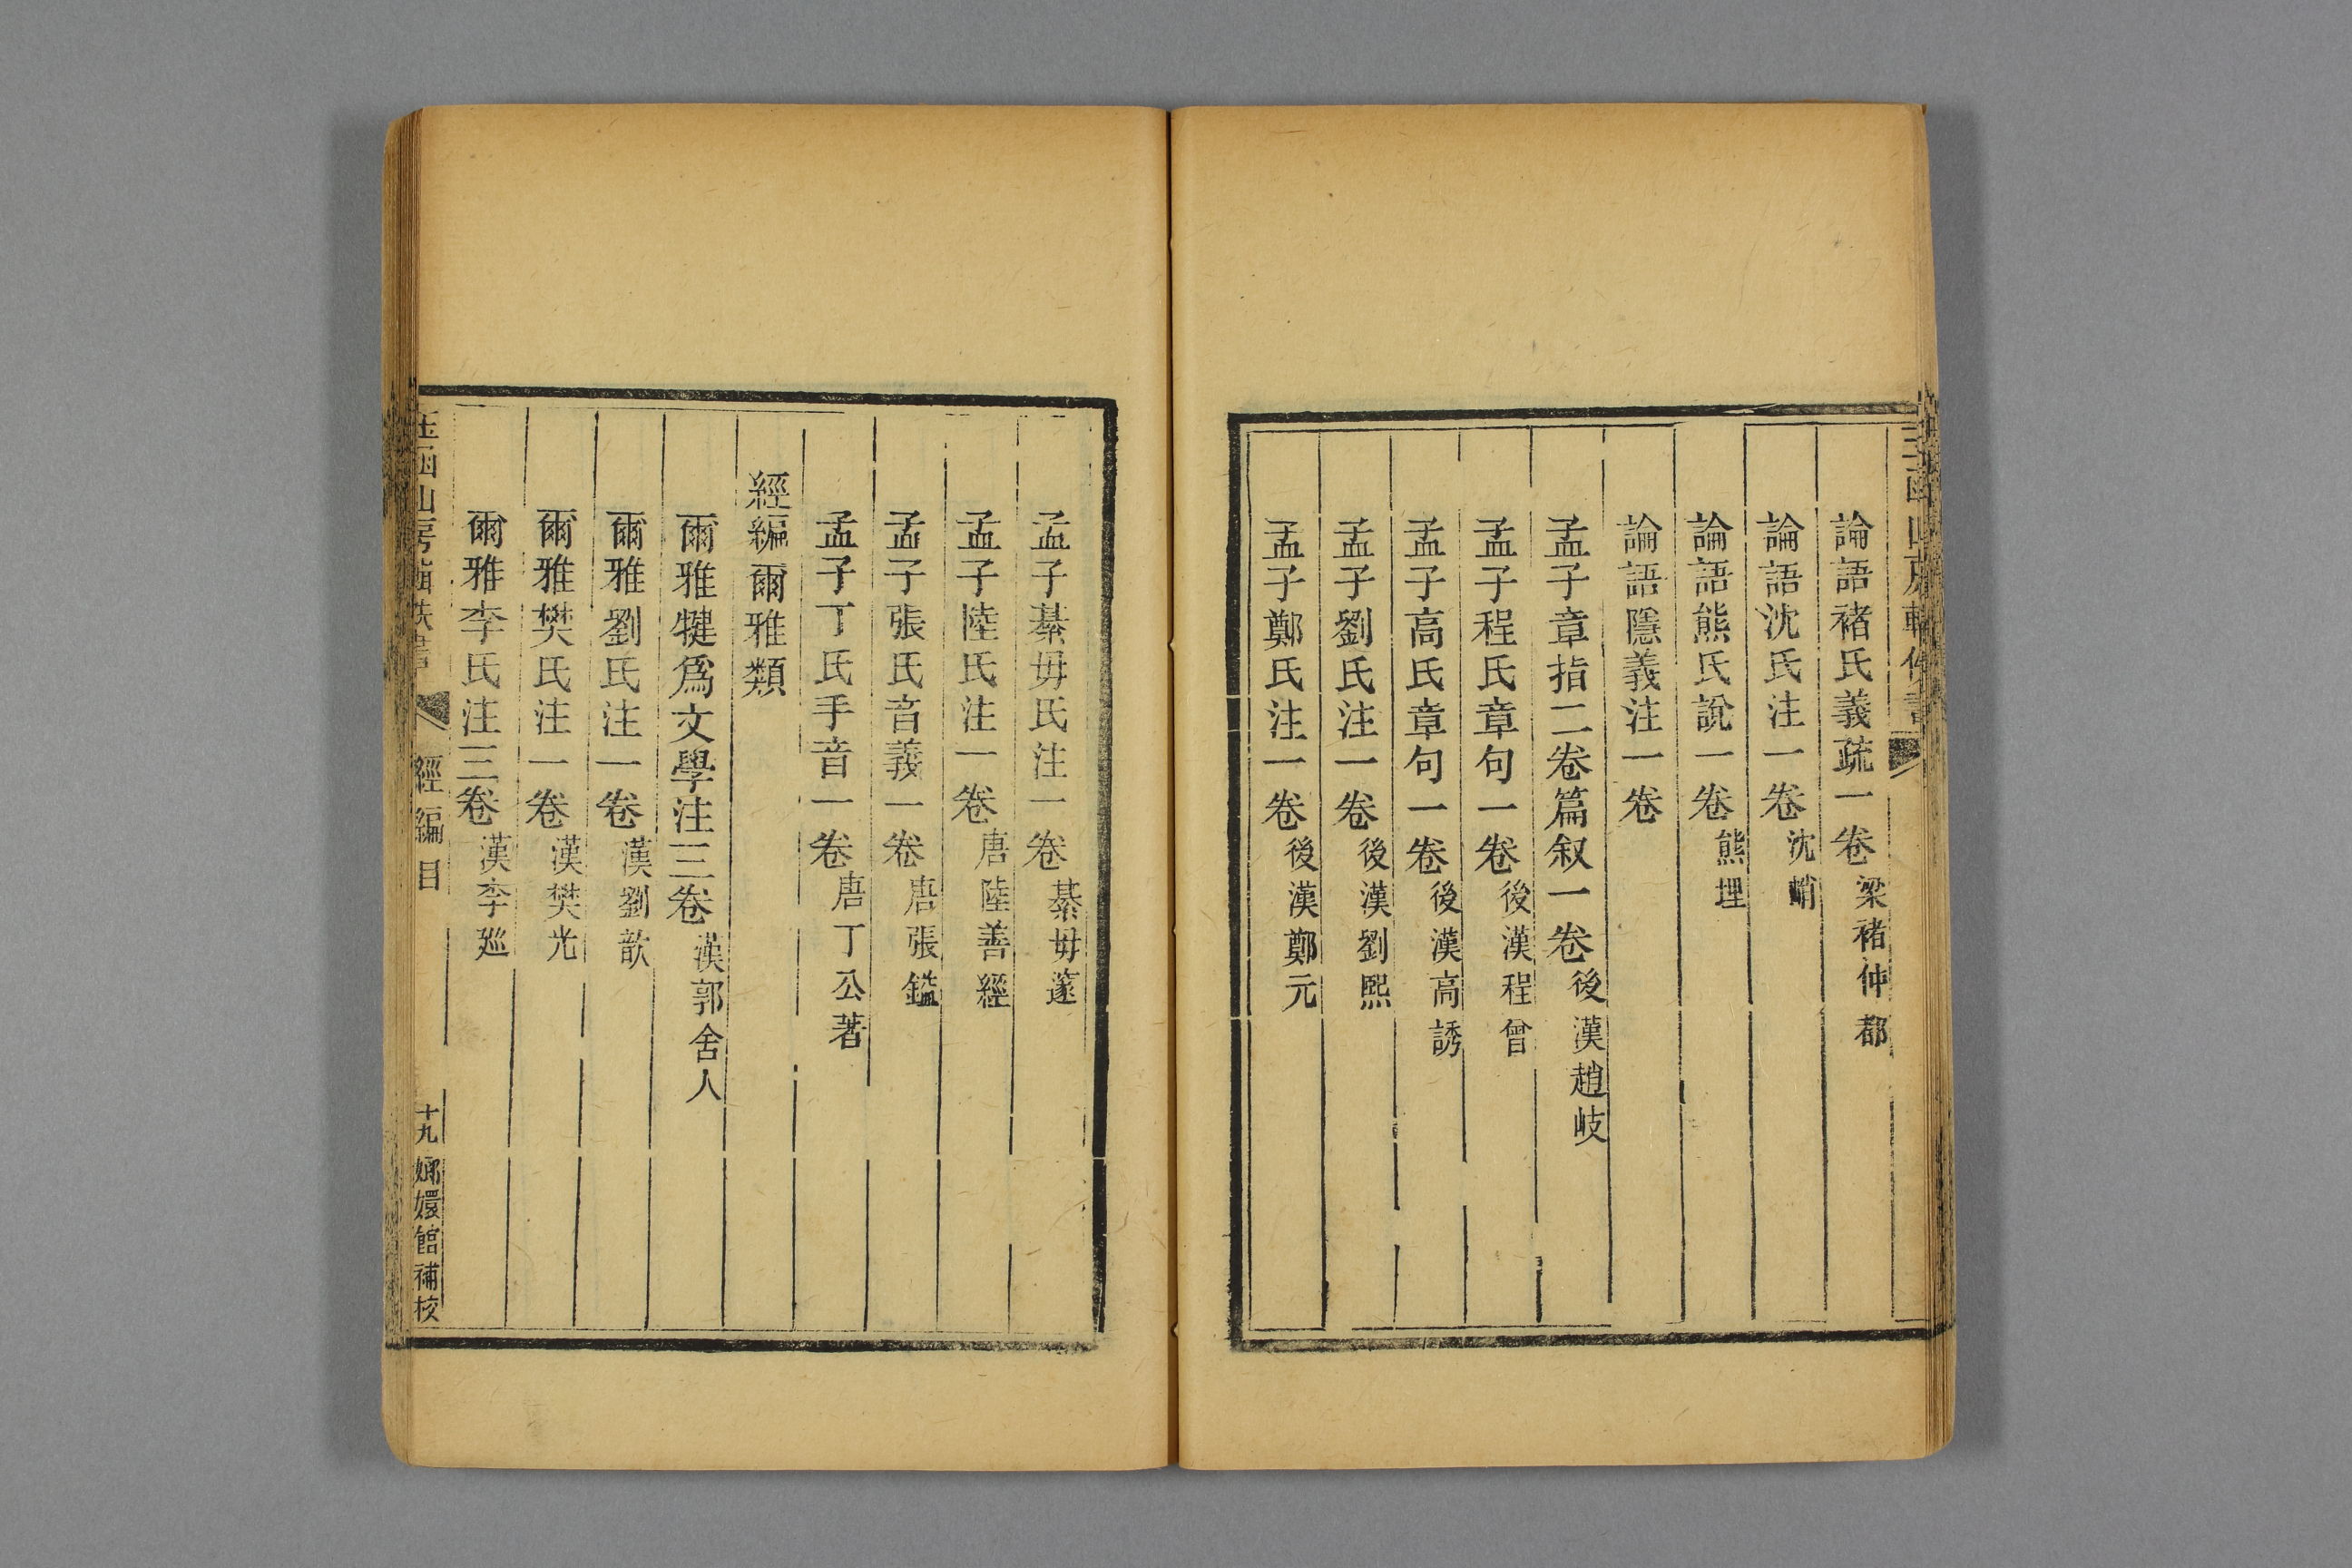 論語褚氏義疏一卷梁褚仲都
論語沈氏注一卷沈峭
論語熊氏說一卷熊埋
論語隱義注一卷
孟子章指二卷篇叙一卷後漢趙岐
孟子程氏章句一卷後漢程曾
孟子高氏章句一卷後漢高誘
孟子劉氏注一卷後漢劉熙
孟子鄭氏注一卷後漢鄭元
孟子綦毋氏注一卷綦毋邃
孟子陸氏注一卷唐陸善經
孟子張氏音義一卷唐張鎰
孟子丁氏手音一卷唐丁公著
經編爾雅類
爾雅犍爲文學注三卷漢郭舍人
爾雅劉氏注一卷漢劉歆
爾雅樊氏注一卷漢樊光
爾雅李氏注三卷漢李廵
玉函山房輯佚書 經編目 十九 嫏嬛館補校